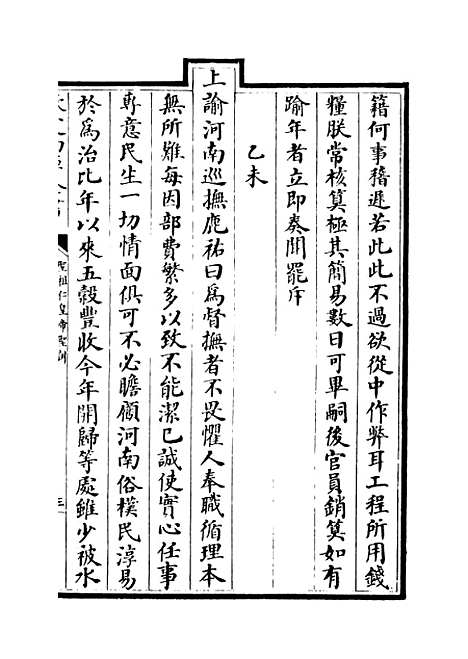 籍何事稽遲若此此不過欲從中作弊耳工程所用錢
糧朕常核算極其簡易數日可畢嗣後官員銷算如有
踰年者立即奏聞罷斥
乙未
上諭河南巡撫鹿祐曰爲督撫者不畏懼人奉職循理本
無所難每因部費繁多以致不能潔己誠使實心任事
專意民生一切情面俱可不必瞻顧河南俗樸民淳易
於爲治比年以來五穀豐收今年開歸等處雖少被水
聖祖仁皇帝聖訓